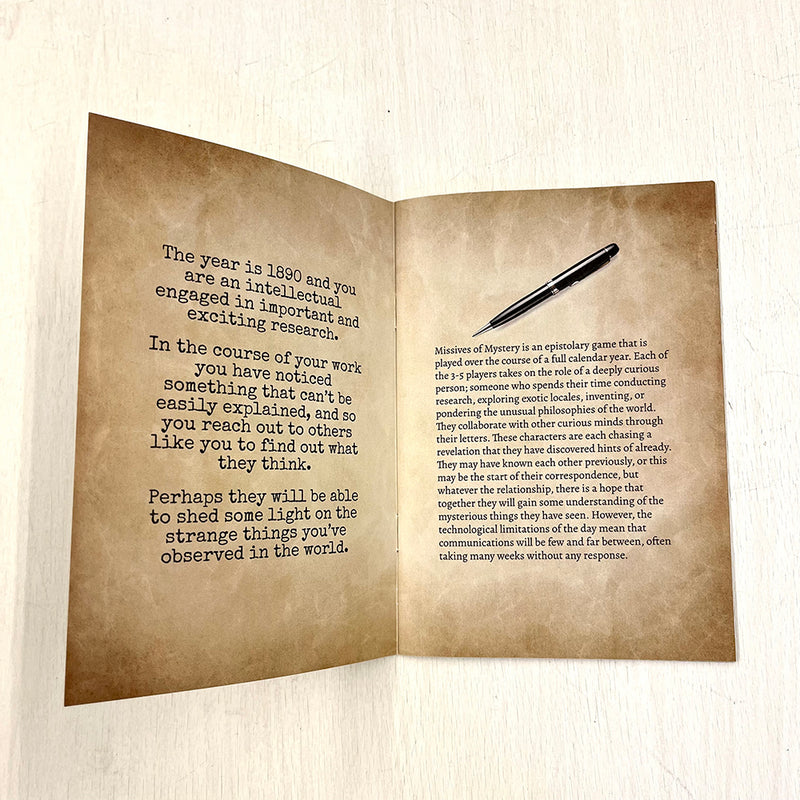 The year is 1890 and you
are an intellectual
engaged in important and
exciting research.
In the course of your work
you have noticed
something that can't be
easily explained, and so
you reach out to others
like you to find out what
they think.
Perhaps they will be able
to shed some light on the
strange things you've
observed in the world.
Missives of Mystery is an epistolary game that is
played over the course of a full calendar year. Each of
the 3-5 players takes on the role of a deeply curious
person; someone who spends their time conducting
research, exploring exotic locales, inventing, or
pondering the unusual philosophies of the world.
They collaborate with other curious minds through
their letters. These characters are each chasing a
revelation that they have discovered hints of already.
They may have known each other previously, or this
may be the start of their correspondence, but
whatever the relationship, there is a hope that
together they will gain some understanding of the
mysterious things they have seen. However, the
technological limitations of the day mean that
communications will be few and far between, often
taking many weeks without any response.